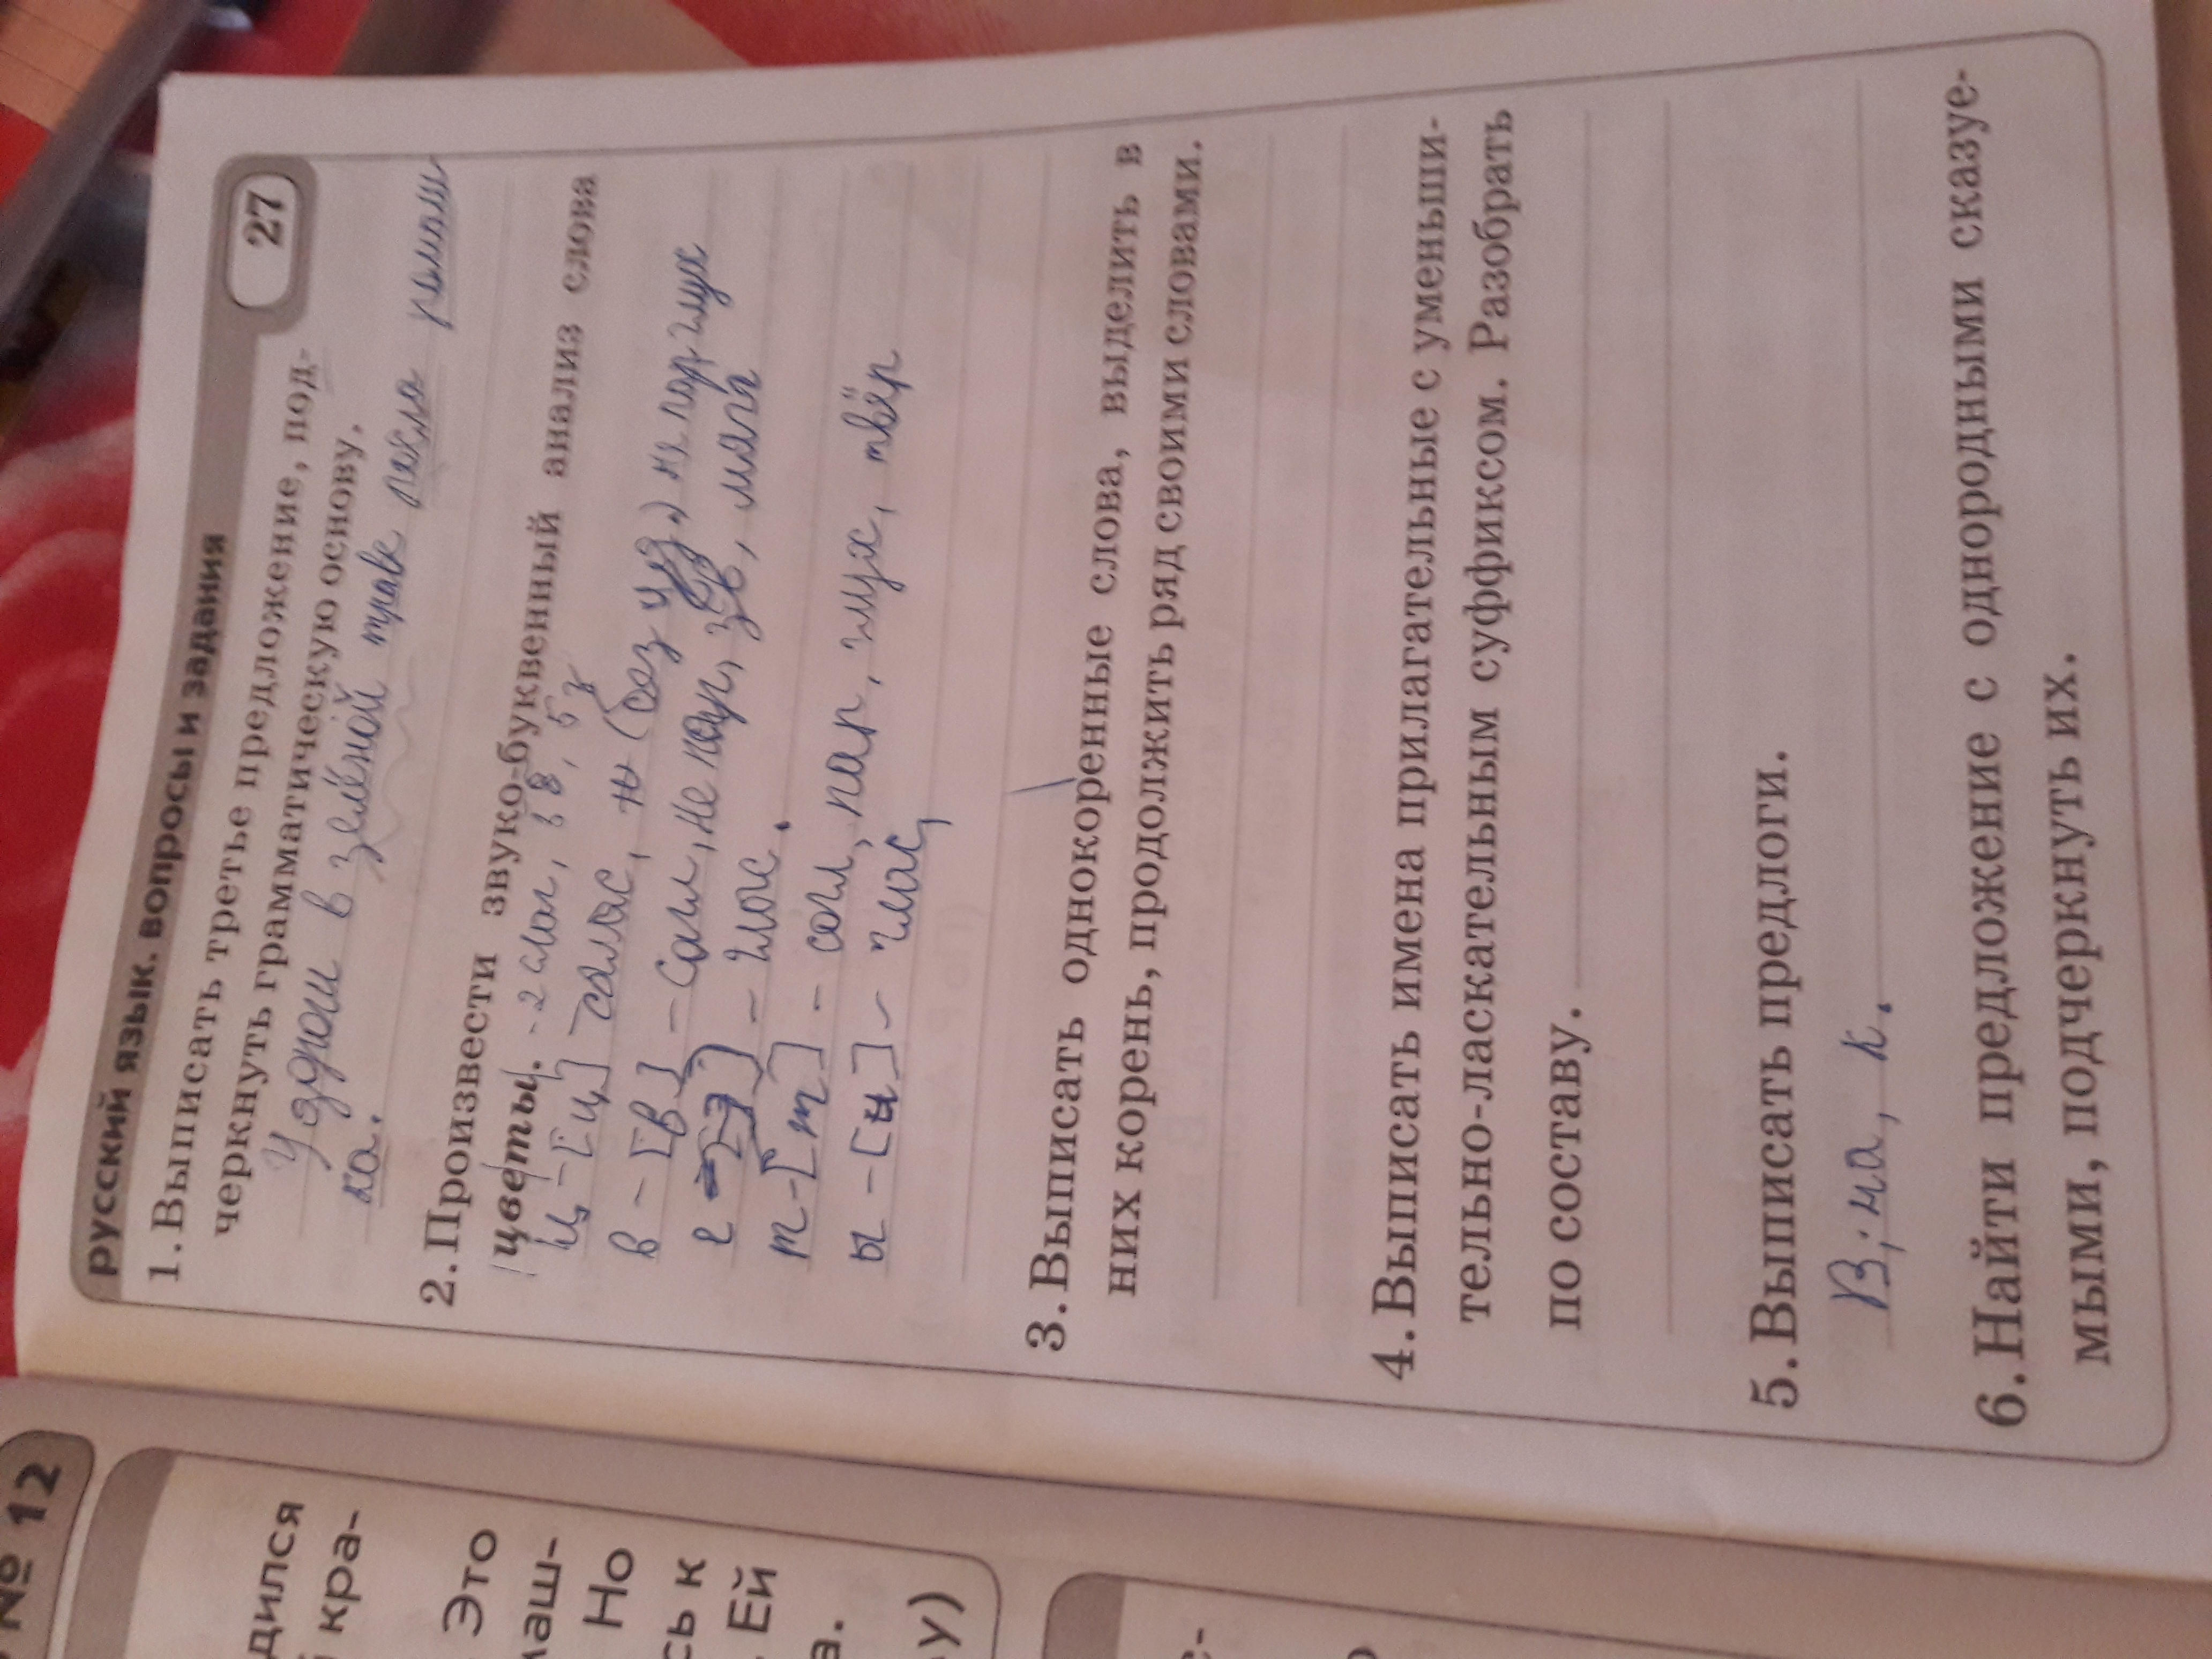 русский язык. вопросы и задания
27
1. Выписать третье предложение, под-
черкнуть грамматическую основу.
в зелёной траве
ка.
2. Произвести звуко-буквенный анализ слова
цветы. - 2 слог, 5 б, 5 з
ц - [ц] (без
в - [в] - согл, не пар, зв, мягк
е - [э] - глас.
т - [т] - согл, пар, глух, твёр
ы - [ы] - глас,
3. Выписать однокоренные слова, выделить в
них корень, продолжить ряд своими словами.
4. Выписать имена прилагательные с уменьши-
тельно-ласкательным суффиксом. Разобрать
по составу.
5. Выписать предлоги.
В; на, к.
6. Найти предложение с однородными сказуе-
мыми, подчеркнуть их.
№ 12
дился
кра-
Это
лаш-
Но
сь к
Ей
а.
у)
с-